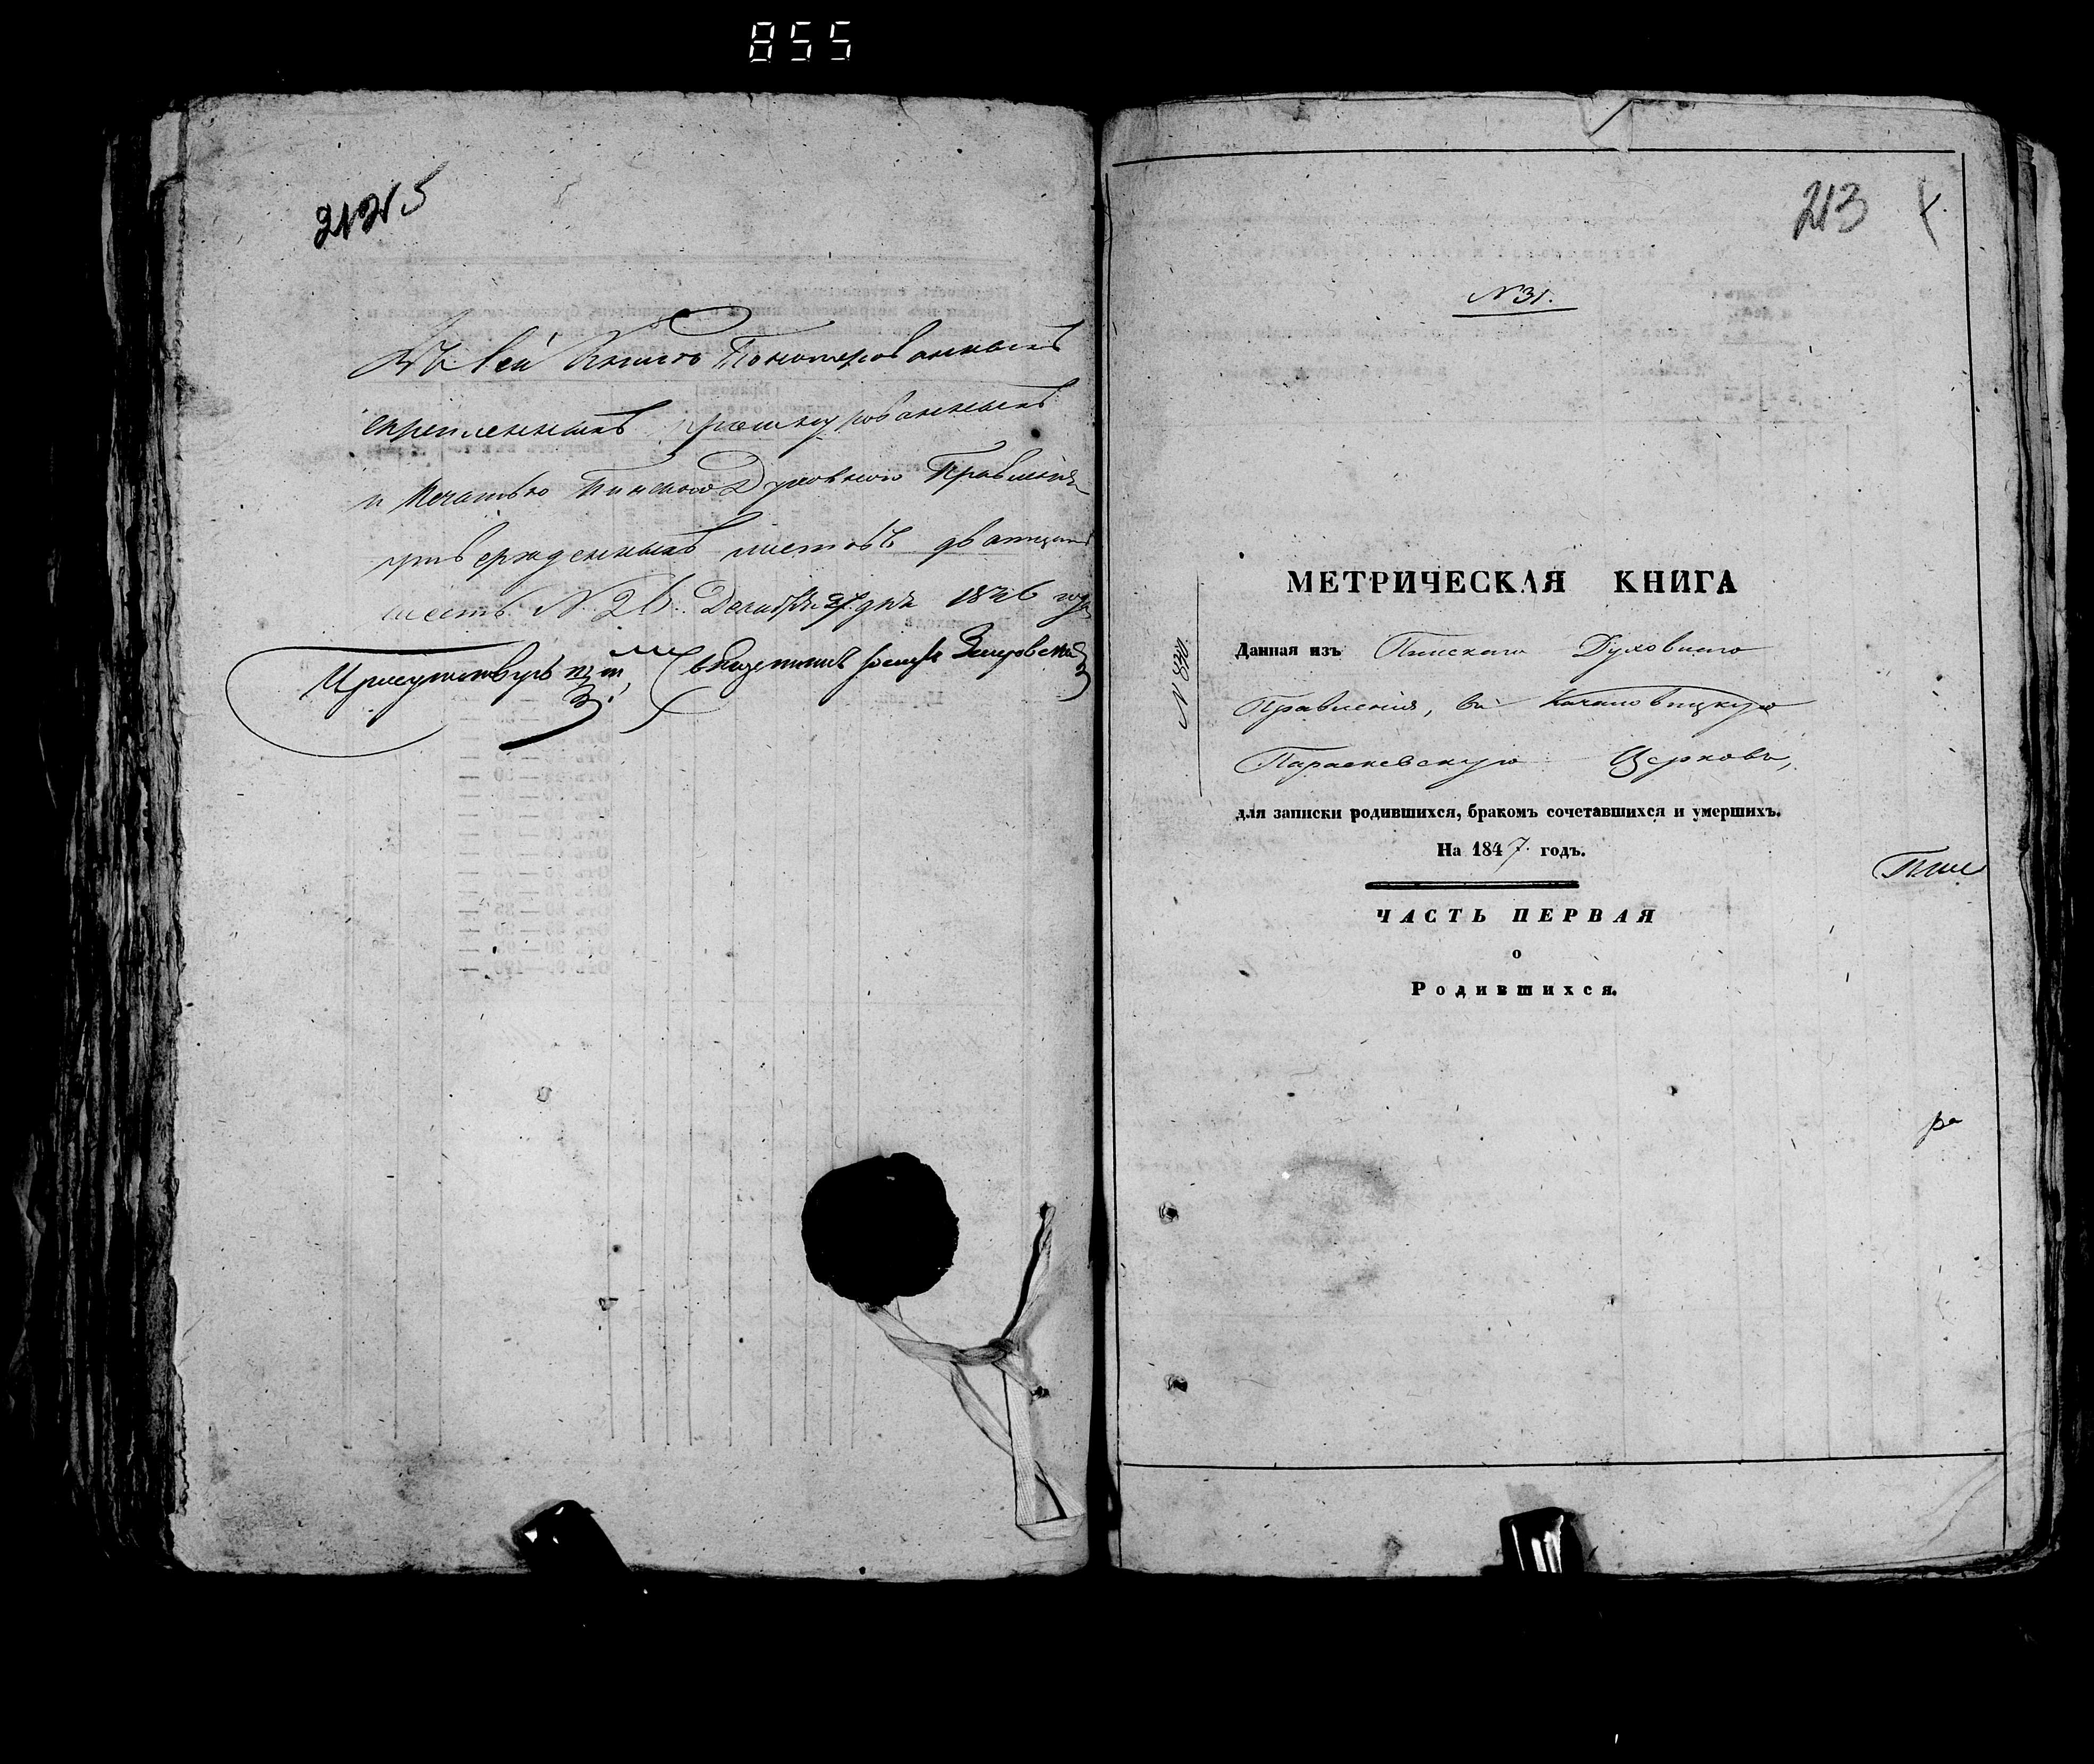 855
Въ сей Книгѣ Пономерованныхъ
скрепленныхъ прошнурованныхъ
и Печатью Пинского Духовного Правленія
утвержденныхъ листовъ дватцать
шесть № 26. Декабря 27 дня 1846 года
Присутствующій
213
№ 31.
МЕТРИЧЕСКАЯ КНИГА
№ 890.
Данная изъ Пинскаго Духовнаго
Правленія, въ Качановицкую
Параскевскую Церковь,
для записки родившихся, бракомъ сочетавшихся и умершихъ.
На 1847. годъ.
ЧАСТЬ ПЕРВАЯ
о
Родившихся.
Пин
ра